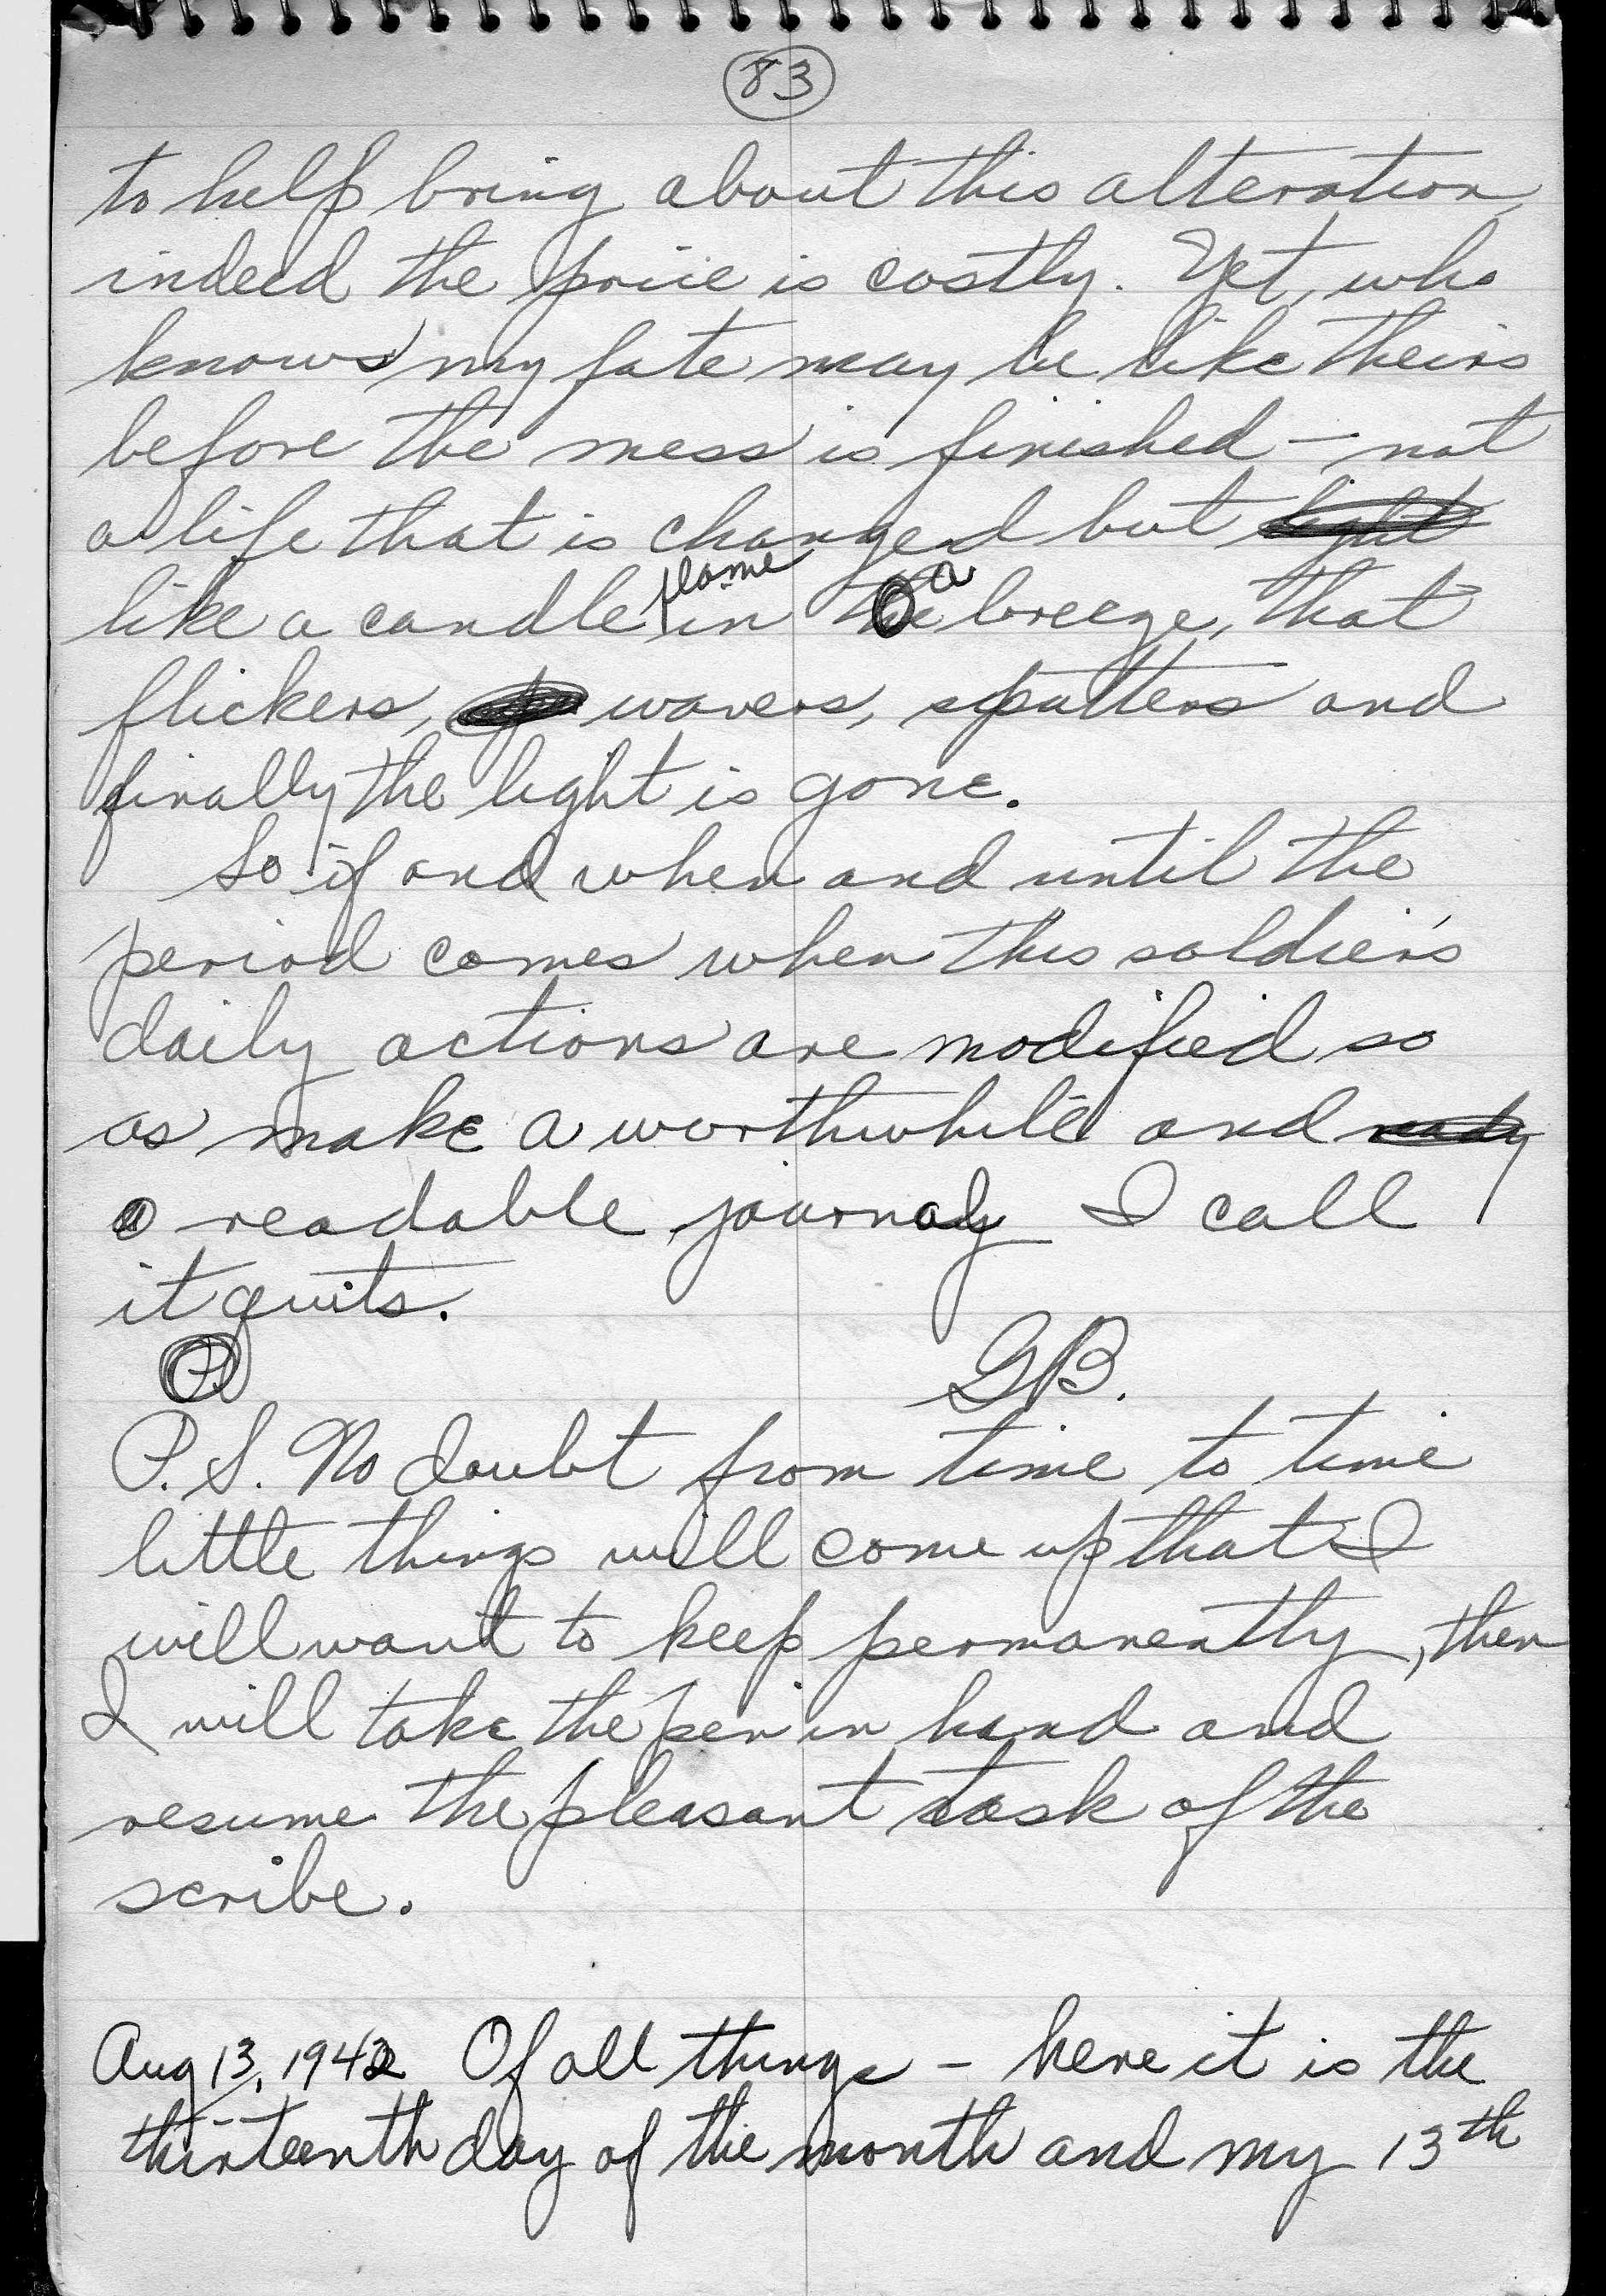 83
to help bring about this alteration,
indeed the price is costly. Yet, who
knows my fate may be like theirs
before the mess is finished — not
a life that is changed but light
like a candle flame in a breeze, that
flickers, wavers, sputters and
finally the light is gone.
So if and when and until the
period comes when this soldier's
daily actions are modified so
as make a worthwhile and ready
a readable journal, I call
it quits.
GB.
P.S. No doubt from time to time
little things will come up that I
will want to keep permanently, then
I will take the pen in hand and
resume the pleasant task of the
scribe.
Aug 13, 1942 Of all things – here it is the
thirteenth day of the month and my 13th